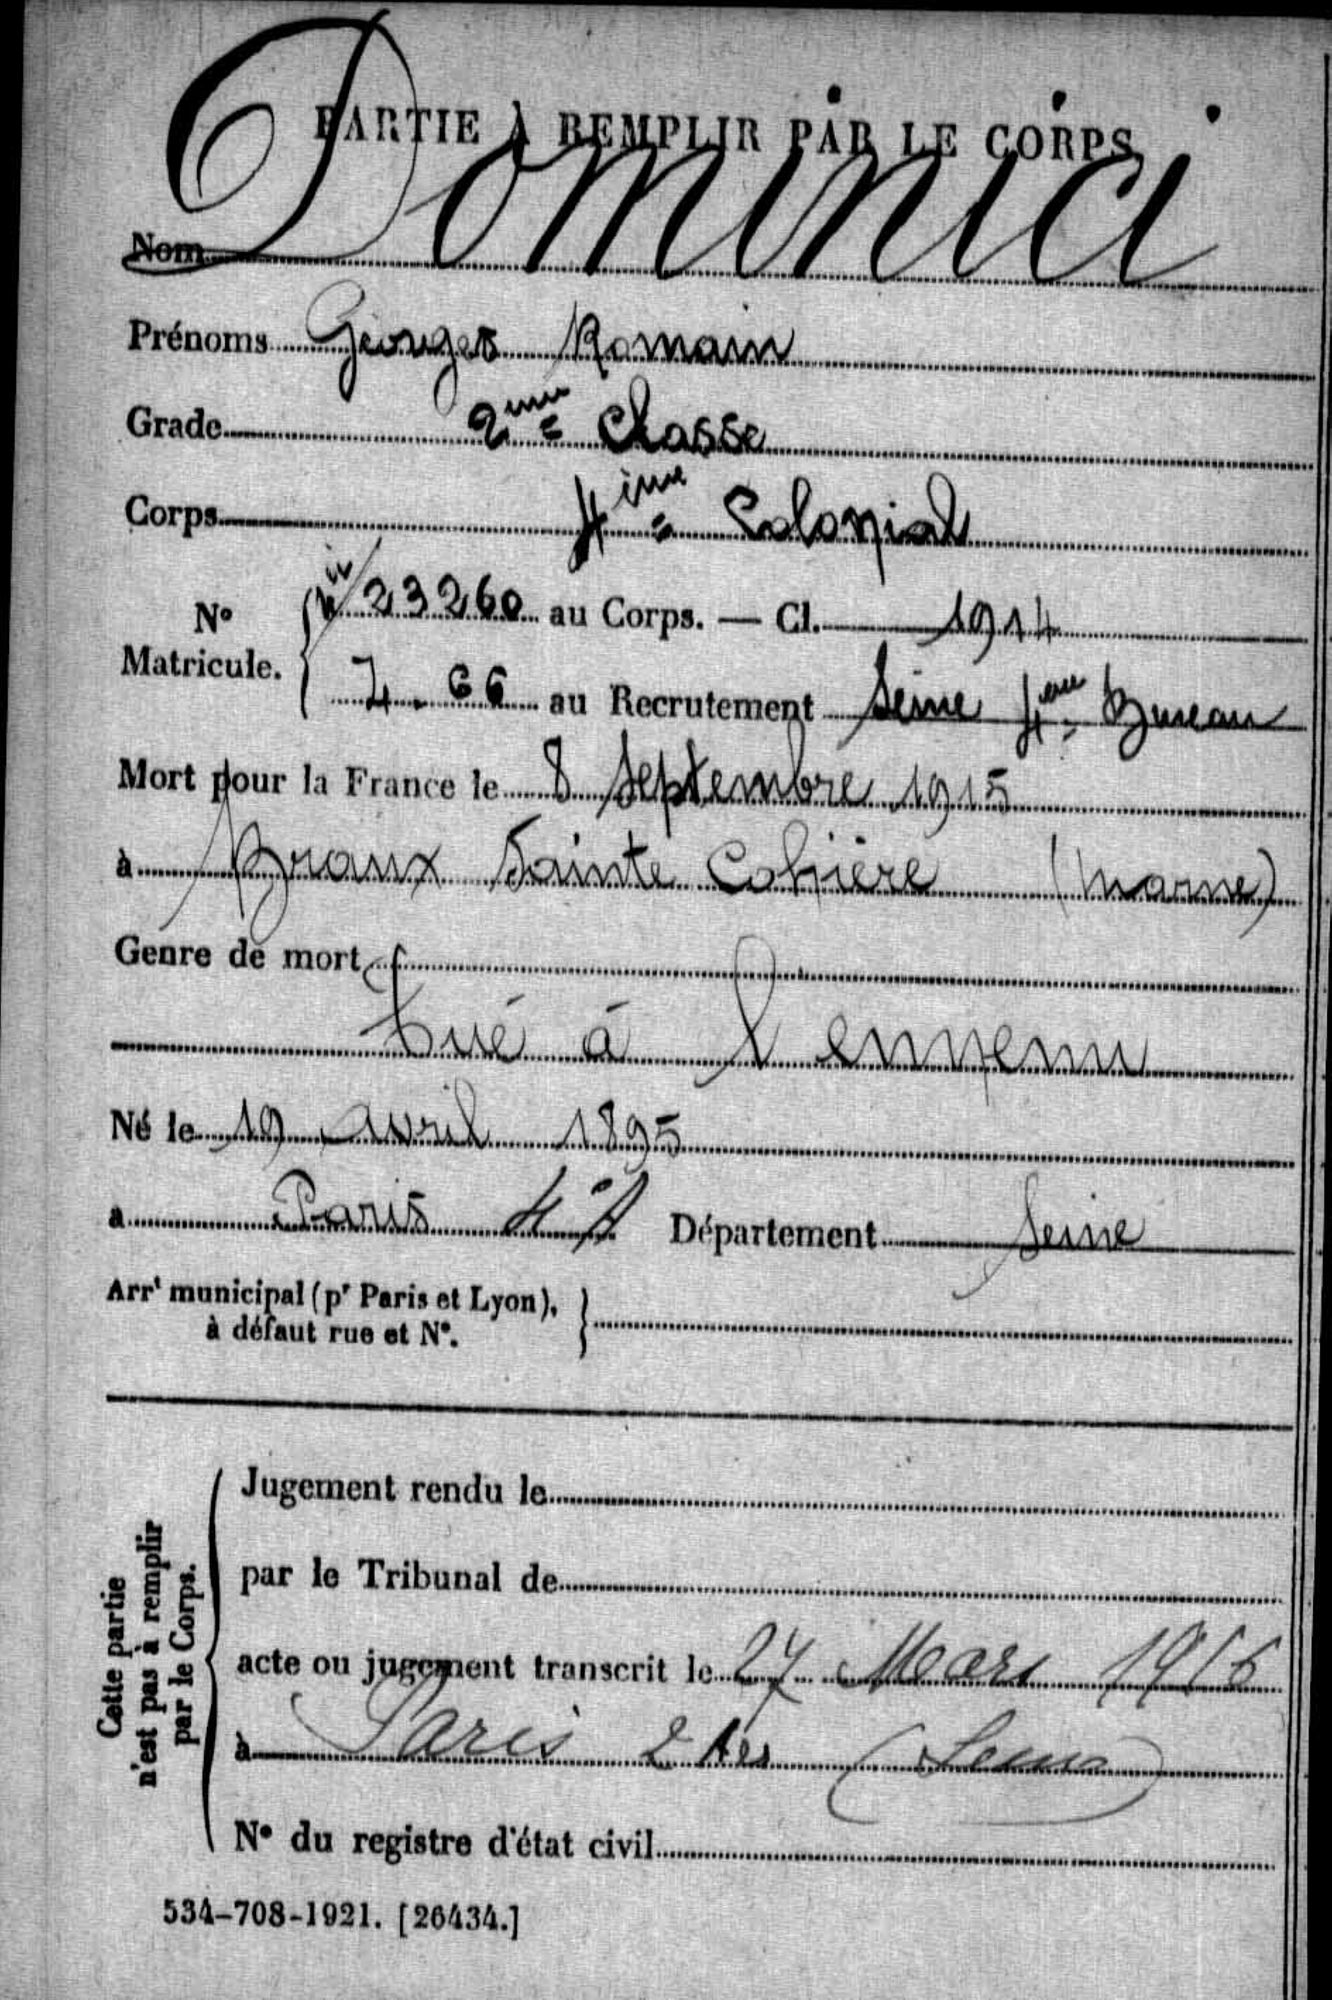 PARTIE À REMPLIR PAR LE CORPS
Nom Dominici
Prénoms Georges Romain
Grade 2ème Classe
Corps 4ième Colonial
N° Matricule. 23260 au Corps. — Cl. 1914
4.66 au Recrutement Seine 4ème Bureau
Mort pour la France le 8 Septembre 1915
à Braux Sainte Cohière (Marne)
Genre de mort
tué à l'ennemi
Né le 19 Avril 1895
à Paris 4°A Département Seine
Arrt municipal (pr Paris et Lyon),
à défaut rue et N°.
Cette partie
n'est pas à remplir
par le Corps.
Jugement rendu le
par le Tribunal de
acte ou jugement transcrit le 27 Mars 1916
à Paris 2 (Seine)
N° du registre d'état civil
534-708-1921. [26434.]